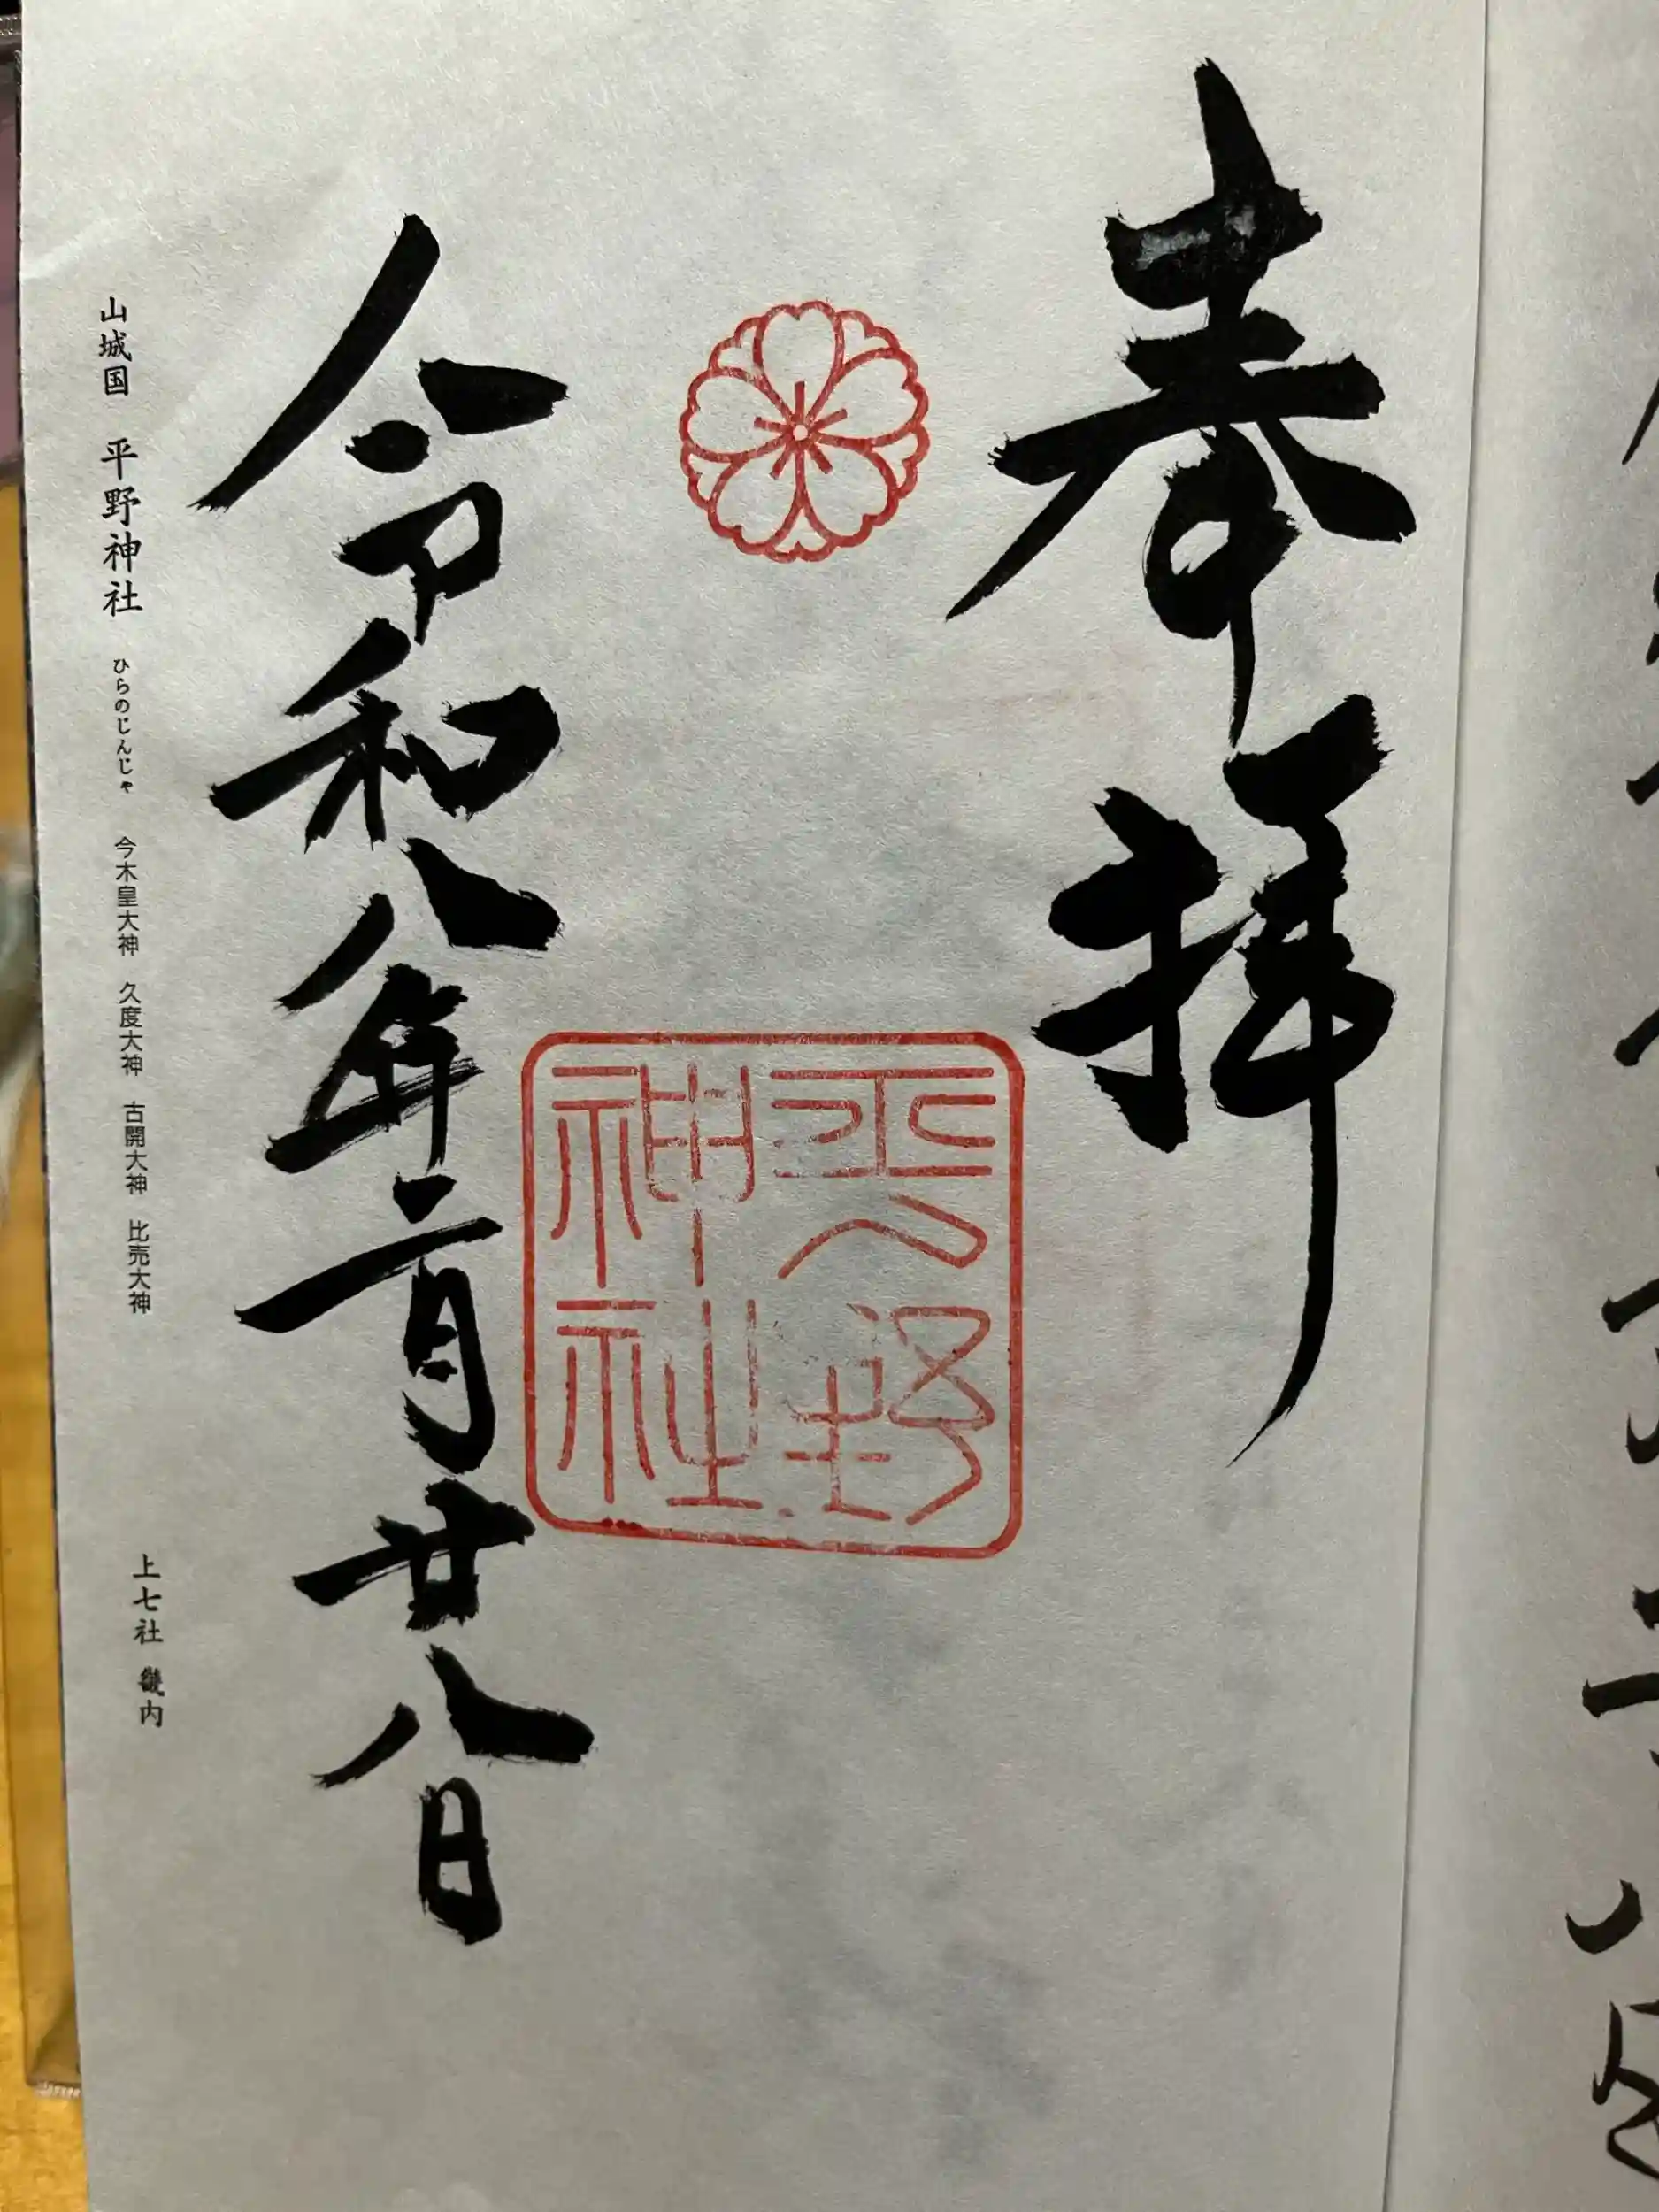 奉拝
平野神社
令和八年二月廿八日
山城国 平野神社 ひらのじんじゃ 今木皇大神 久度大神 古開大神 比売大神 上七社 畿内